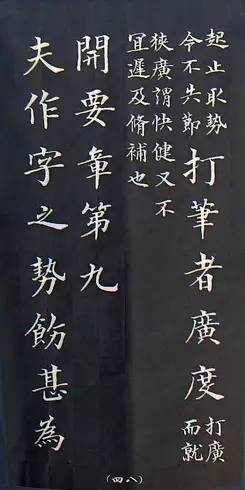 起止取勢
令不失節
打筆者廣度
打廣
而就
狹廣謂快健又不
冝遲及脩補也
開要章第九
夫作字之勢飭甚為
(四八)